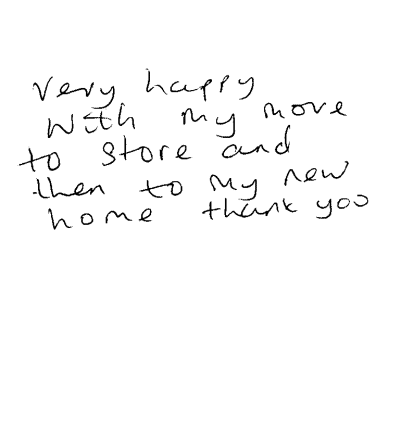 Very happy
with my move
to store and
then to my new
home thank you